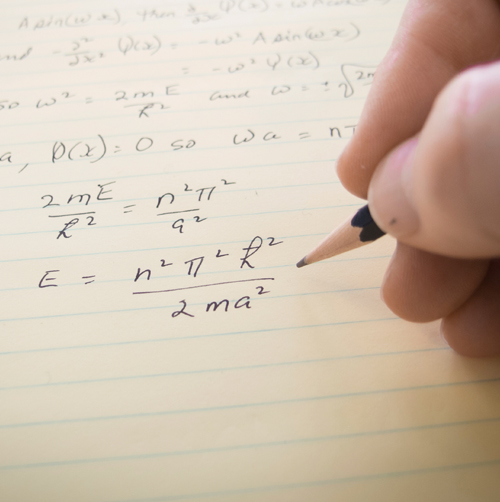 A sin(ωx), then ∂/∂x ψ(x) = ωA cos(ωx)
and -∂²/∂x² ψ(x) = -ω² A sin(ωx)
= -ω² ψ(x)
so ω² = 2mE/ℏ² and ω = ±√2m
a, ψ(x) = 0 so ωa = nπ
2mE/ℏ² = n²π²/a²
E = n²π²ℏ²/2ma²